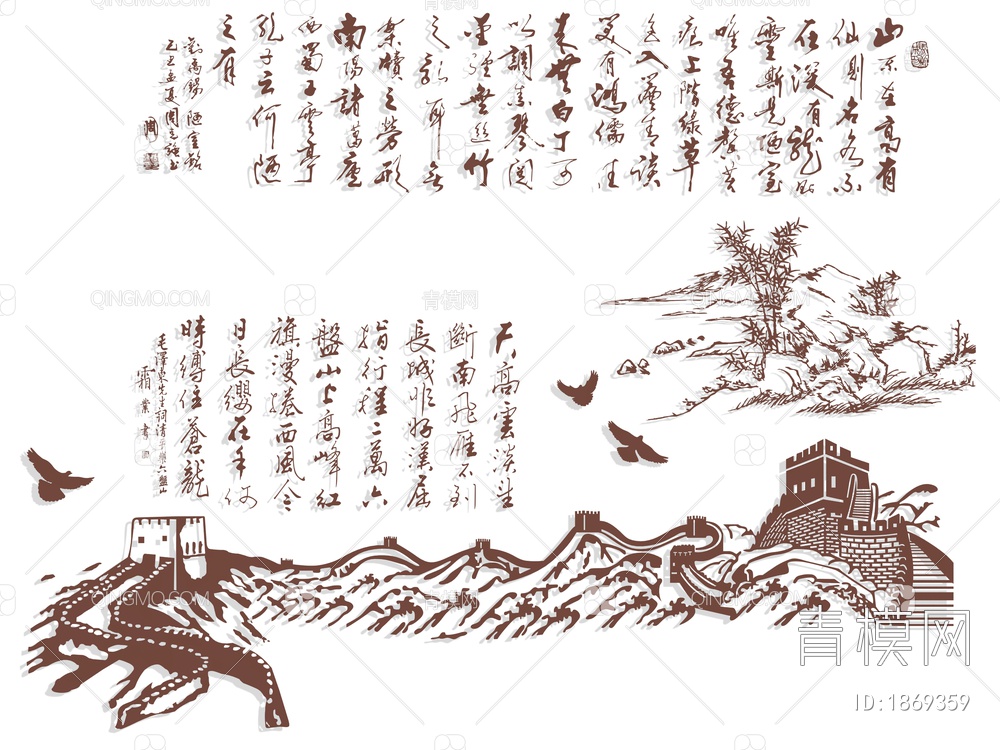 山不在高有
仙則名水不
在深有龍則
靈斯是陋室
唯吾德馨苔
痕上階綠草
色入簾青談
笑有鴻儒往
來無白丁可
以調素琴閱
金經無絲竹
之亂耳無
案牘之勞形
南陽諸葛廬
西蜀子雲亭
孔子云何陋
之有
劉禹錫陋室銘
天高雲淡望
斷南飛雁不到
長城非好漢屈
指行程二萬六
盤山上高峰紅
旗漫捲西風今
日長纓在手何
時縛住蒼龍
毛澤東詞清平樂六盤山
霜葉書
青模网
QINGMO.COM
青模网
ID:1869359